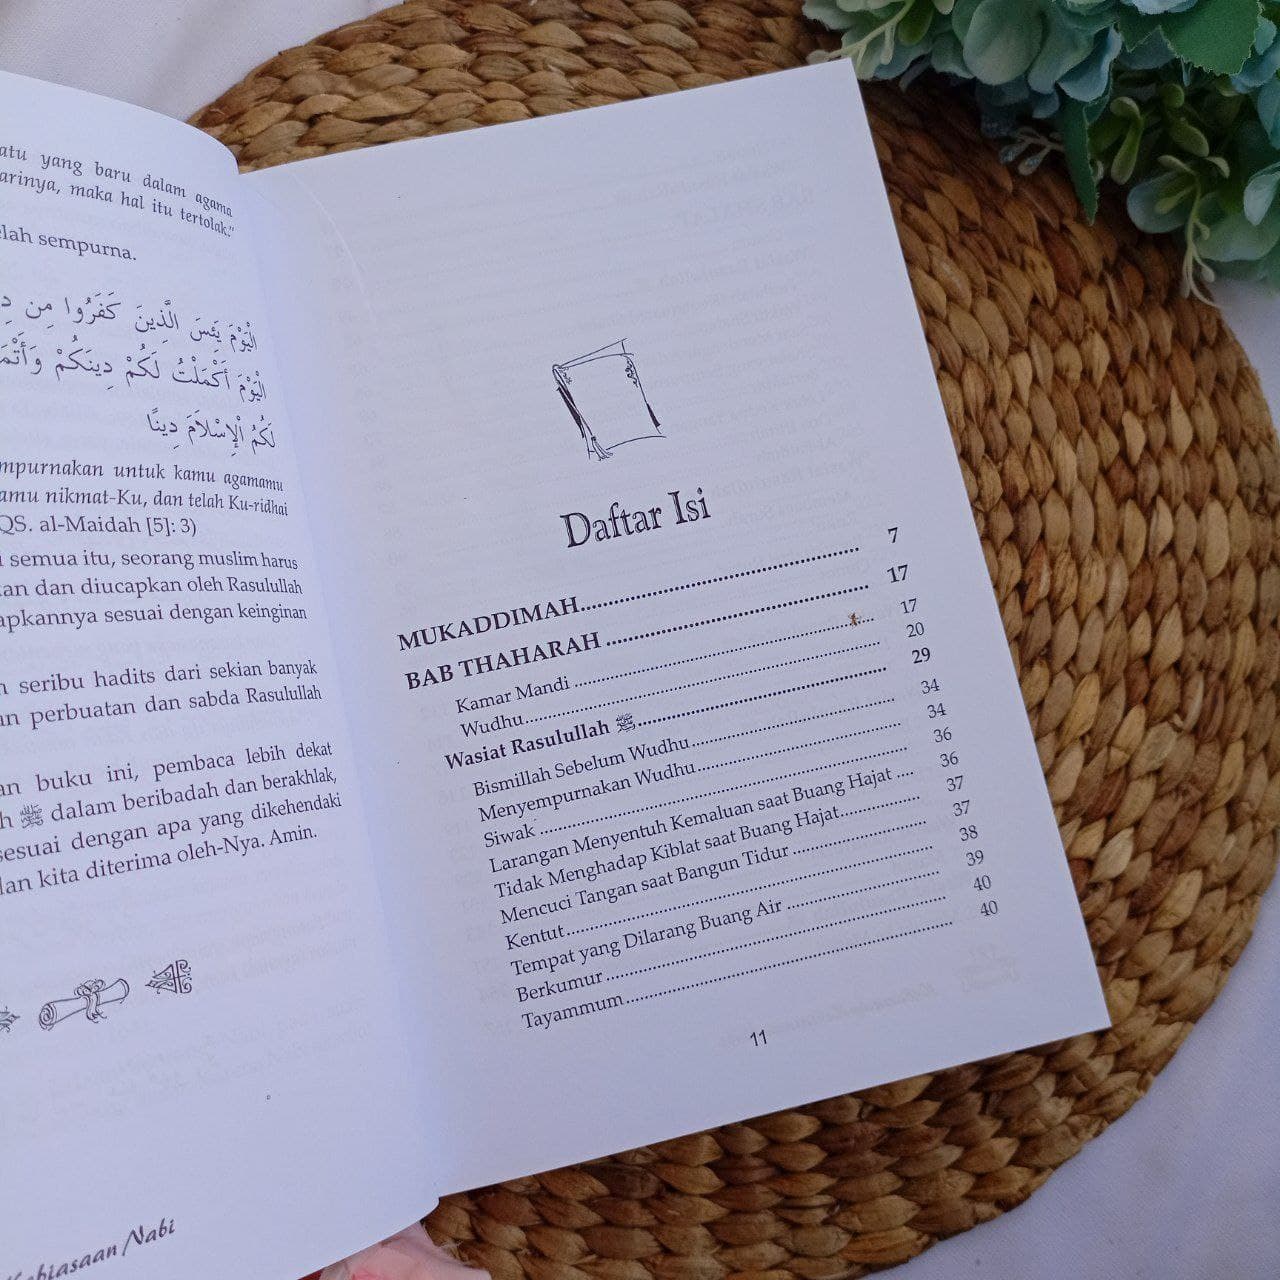 atu yang baru dalam agama
arinya, maka hal itu tertolak."
elah sempurna.
الْيَوْمَ يَئِسَ الَّذِينَ كَفَرُوا مِن
الْيَوْمَ أَكْمَلْتُ لَكُمْ دِينَكُمْ وَأَتْمَ
لَكُمُ الْإِسْلَامَ دِينًا
mpurnakan untuk kamu agamamu
amu nikmat-Ku, dan telah Ku-ridhai
QS. al-Maidah [5]: 3)
i semua itu, seorang muslim harus
kan dan diucapkan oleh Rasulullah
apkannya sesuai dengan keinginan
n seribu hadits dari sekian banyak
an perbuatan dan sabda Rasulullah
an buku ini, pembaca lebih dekat
h ﷺ dalam beribadah dan berakhlak,
sesuai dengan apa yang dikehendaki
lan kita diterima oleh-Nya. Amin.
Kebiasaan Nabi
Daftar Isi
MUKADDIMAH 7
BAB THAHARAH 17
Kamar Mandi 17
Wudhu 20
Wasiat Rasulullah ﷺ 29
Bismillah Sebelum Wudhu 34
Menyempurnakan Wudhu 34
Siwak 36
Larangan Menyentuh Kemaluan saat Buang Hajat 36
Tidak Menghadap Kiblat saat Buang Hajat 37
Mencuci Tangan saat Bangun Tidur 37
Kentut 38
Tempat yang Dilarang Buang Air 39
Berkumur 40
Tayammum 40
11